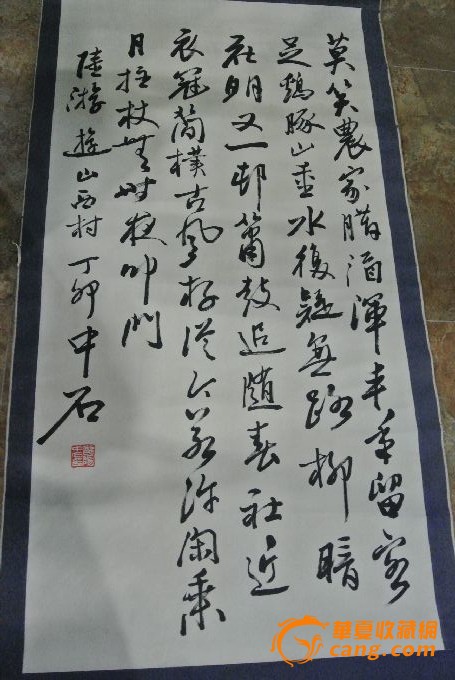 莫笑農家腊酒渾丰年留客
足鷄豚山重水復疑無路柳暗
花明又一邨簫鼓追隨春社近
衣冠簡樸古風存從今若許閑乘
月拄杖無時夜叩門
陸游遊山西村丁卯中石
華夏收藏網
cang.com